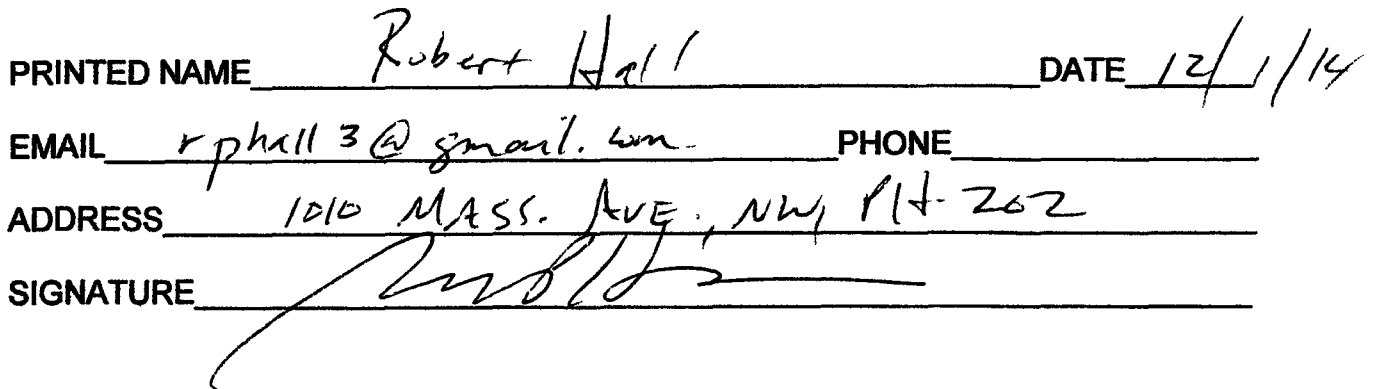 PRINTED NAME Robert Hall DATE 12/1/14
EMAIL rphall3@gmail.com PHONE
ADDRESS 1010 MASS. AVE., NW, PH-202
SIGNATURE